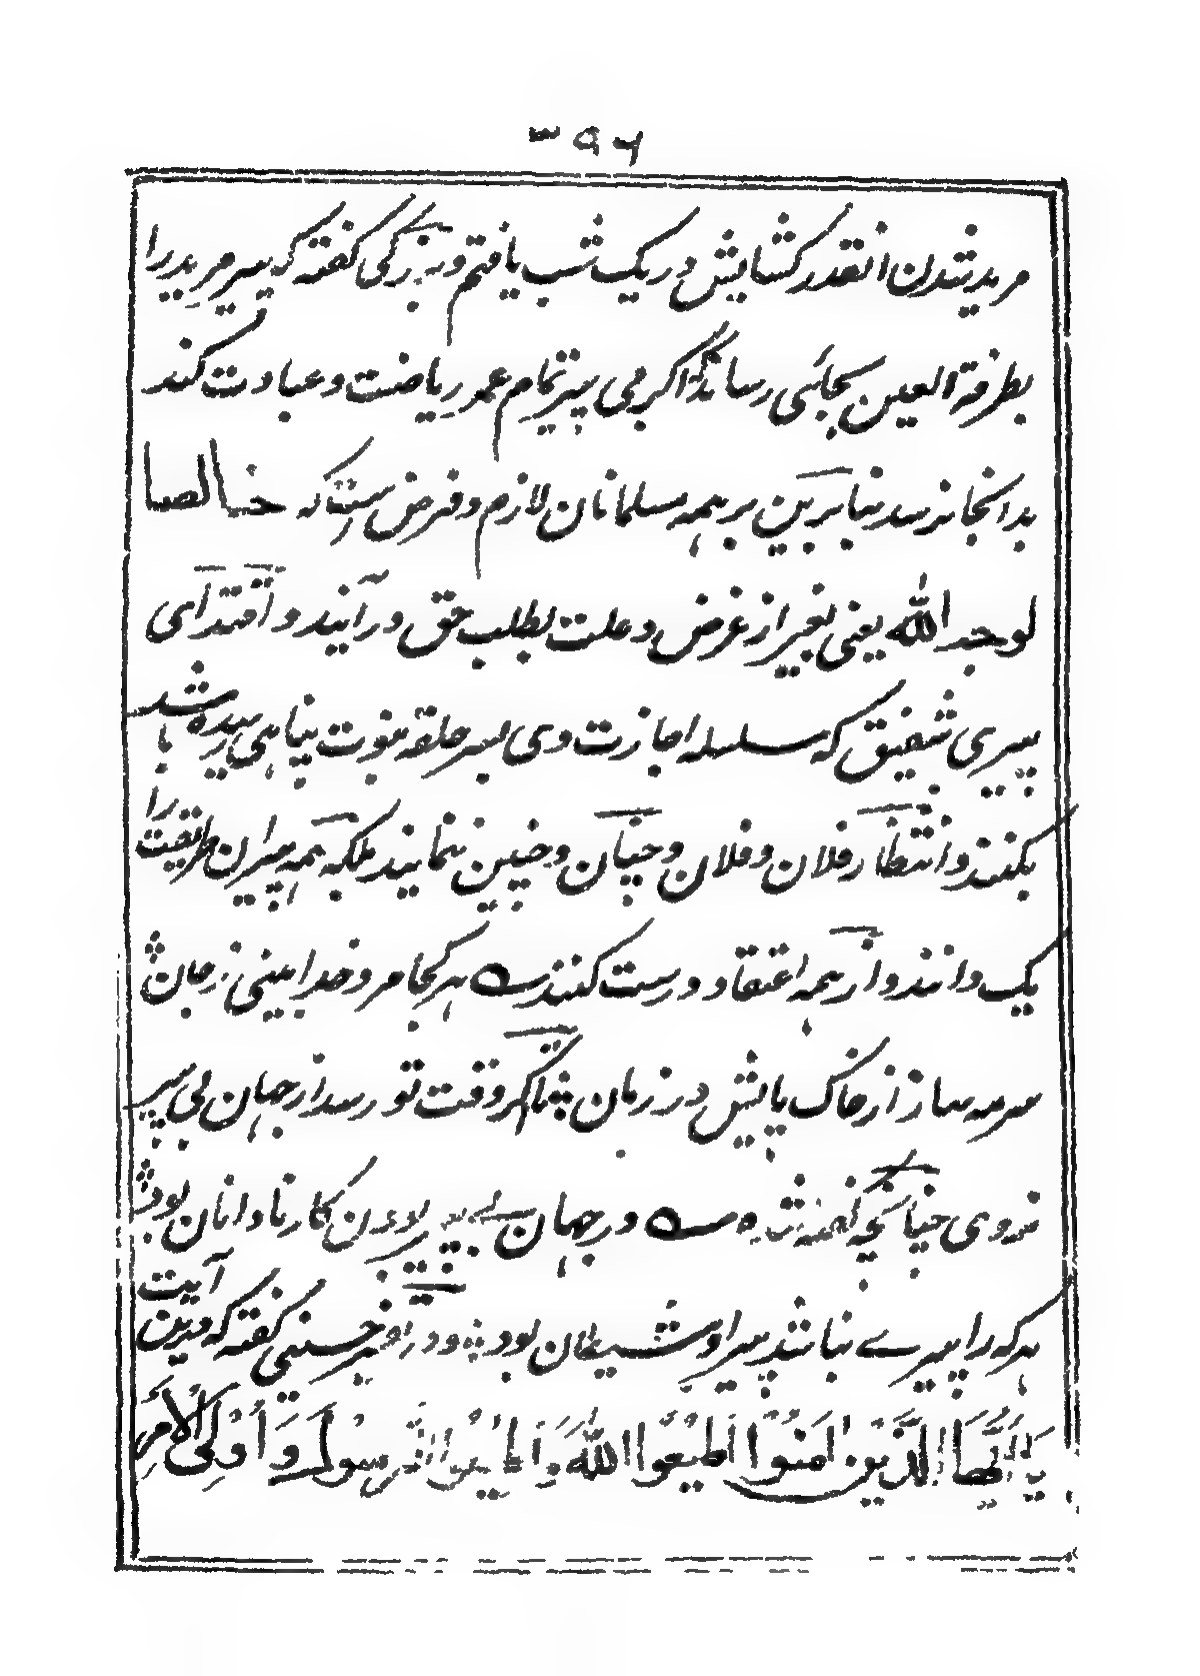 ۳۹۶
مرید شدن انقدر کشایش در یک شب یافتم و بزرگی گفته که پیر مرید را
بطرفة العین بجائی رساند که اگر می پیر تمام عمر ریاضت و عبادت کند
بدانجا نرسد بنابرین بر همه مسلمانان لازم و فرض است که خالصا
لوجه الله یعنی بغیر از غرض و علت بطلب حق در آیند و اقتدای
پیری شفیق که سلسله اجازت وی بسر حلقه نبوت پناهی رسیده باشد
بکنند و انتظار فلان و فلان و چنان و چنین ننمایند بلکه همه پیران طریقت را
یک دانند و از همه اعتقاد درست کنند ه هر کجا مرد خدا بینی ز جان
سرمه ساز از خاک پایش در زمان اگر وقت تو رسد از جهان بی پیر
نروی چنانچه گفته شده ه در جهان بی پیر بودن کار نادانان بود
هر که را پیرے نباشد پیر او شیطان بود و در حسینی گفته که درین آیت
یا أیها الذین آمنوا أطیعوا الله وأطیعوا الرسول وأولی الأمر